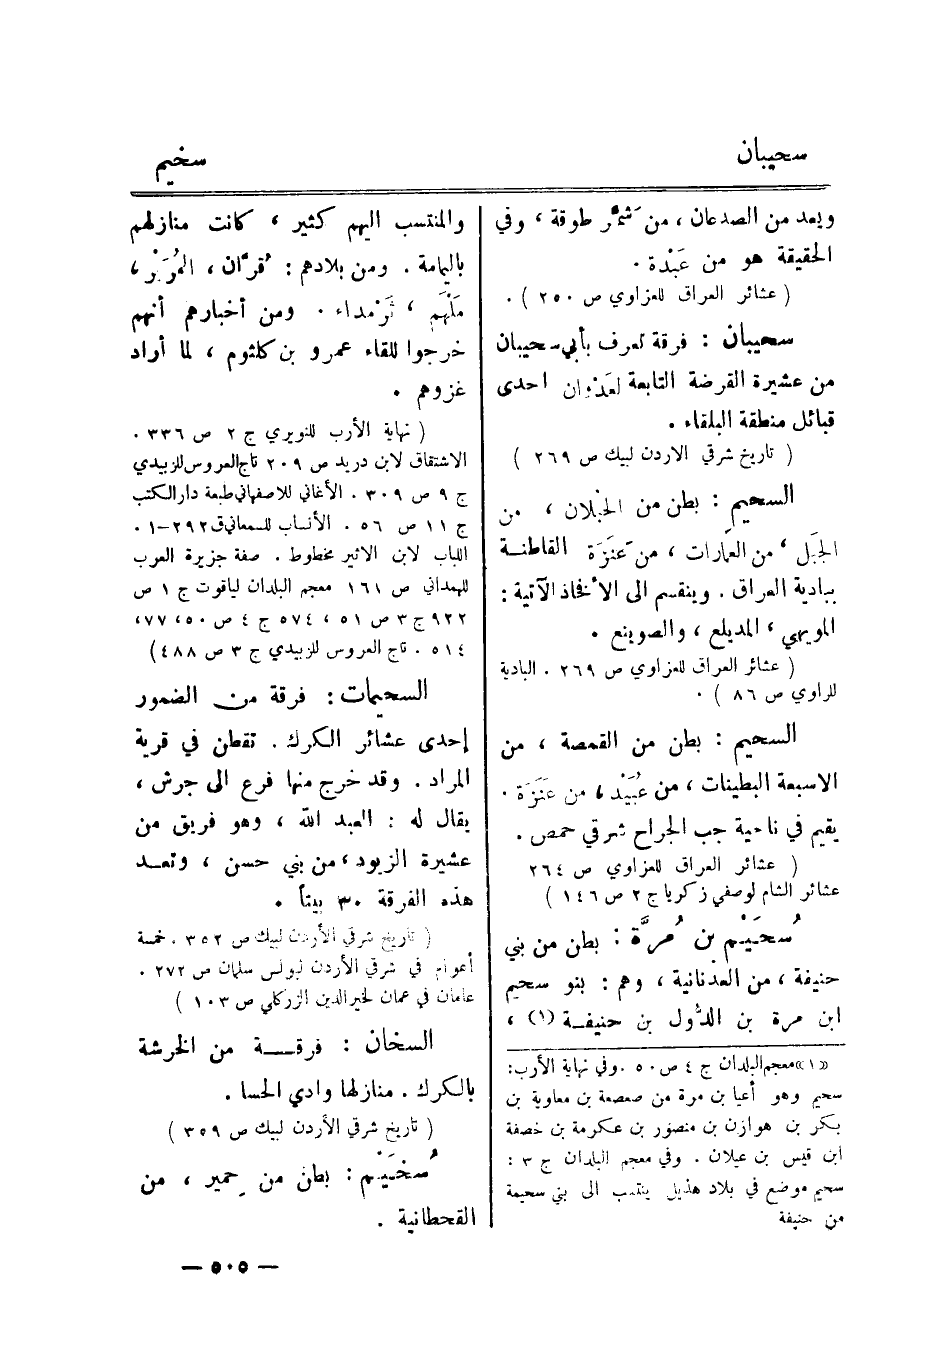 سحيبان
سخيم
ويعد من الصدعان ، من شمَّر طوقة ، وفي
الحقيقة هو من عَبْدة .
( عشائر العراق للعزاوي ص ٢٥٠ ) .
سحيبان : فرقة تعرف بأبي سحيبان
من عشيرة القرضة التابعة لعَدْوان احدى
قبائل منطقة البلقاء .
( تاريخ شرقي الاردن لبيك ص ٢٦٩ )
السحيم : بطن من الحْبلان ، من
الجَبَل ، من العمارات ، من عَنَزَة القاطنة
ببادية العراق . وينقسم الى الأفخاذ الآتية :
المويهي ، المديلع ، والصوينع .
( عشائر العراق للعزاوي ص ٢٦٩ . البادية
للراوي ص ٨٦ ) .
السحيم : بطن من القمصة ، من
الاسبعة البطينات ، من عُبَيْد ، من عَنَزَة .
يقيم في ناحية جب الجراح شرقي حمص .
( عشائر العراق للعزاوي ص ٢٦٤
عشائر الشام لوصفي زكريا ج ٢ ص ١٤٦ )
سُحَيْم بن مُرَّة : بطن من بني
حنيفة ، من العدنانية ، وهم : بنو سحيم
ابن مرة بن الدُّول بن حنيفة (١) ،
«١» معجم البلدان ج ٤ ص ٥٠ . وفي نهاية الأرب:
سحيم وهو أعيا بن مرة من صعصعة بن معاوية بن
بكر بن هوازن بن منصور بن عكرمة بن خصفة
ابن قيس بن عيلان . وفي معجم البلدان ج ٣ :
سحيم موضع في بلاد هذيل ينتسب الى بني سحيمة
من حنيفة
والمنتسب اليهم كثير ، كانت منازلهم
باليمامة . ومن بلادهم : قُرَّان ، المُرَيْر ،
مَلْهَم ، ثَرْمداء . ومن أخبارهم أنهم
خرجوا للقاء عمرو بن كلثوم ، لما أراد
غزوهم .
( نهاية الأرب للنويري ج ٢ ص ٣٣٦ .
الاشتقاق لابن دريد ص ٢٠٩ تاج العروس للزبيدي
ج ٩ ص ٣٠٩ . الأغاني للاصفهاني طبعة دار الكتب
ج ١١ ص ٥٦ . الأنساب للسمعاني ق ٢٩٢–١ .
اللباب لابن الاثير مخطوط . صفة جزيرة العرب
للهمداني ص ١٦١ معجم البلدان لياقوت ج ١ ص
٩٢٢ ج ٣ ص ٥١ ، ٥٧٤ ج ٤ ص ٥٠ ، ٧٧،
٥١٤ . تاج العروس للزبيدي ج ٣ ص ٤٨٨)
السحيمات : فرقة من الضمور
إحدى عشائر الكرك . تقطن في قرية
المراد . وقد خرج منها فرع الى جرش ،
يقال له : العبد الله ، وهو فريق من
عشيرة الزيود ، من بني حسن ، وتعد
هذه الفرقة ٣٠ بيتاً .
( تاريخ شرقي الأردن لبيك ص ٣٥٢ . خمسة
أعوام في شرقي الأردن لبولس سلمان ص ٢٧٢ .
عامان في عمان لخير الدين الزركلي ص ١٠٣ )
السخان : فرقة من الخرشة
بالكرك . منازلها وادي الحسا .
( تاريخ شرقي الأردن لبيك ص ٣٥٩ )
سُخَيْم : بطن من حمير ، من
القحطانية .
— ٥٠٥ —